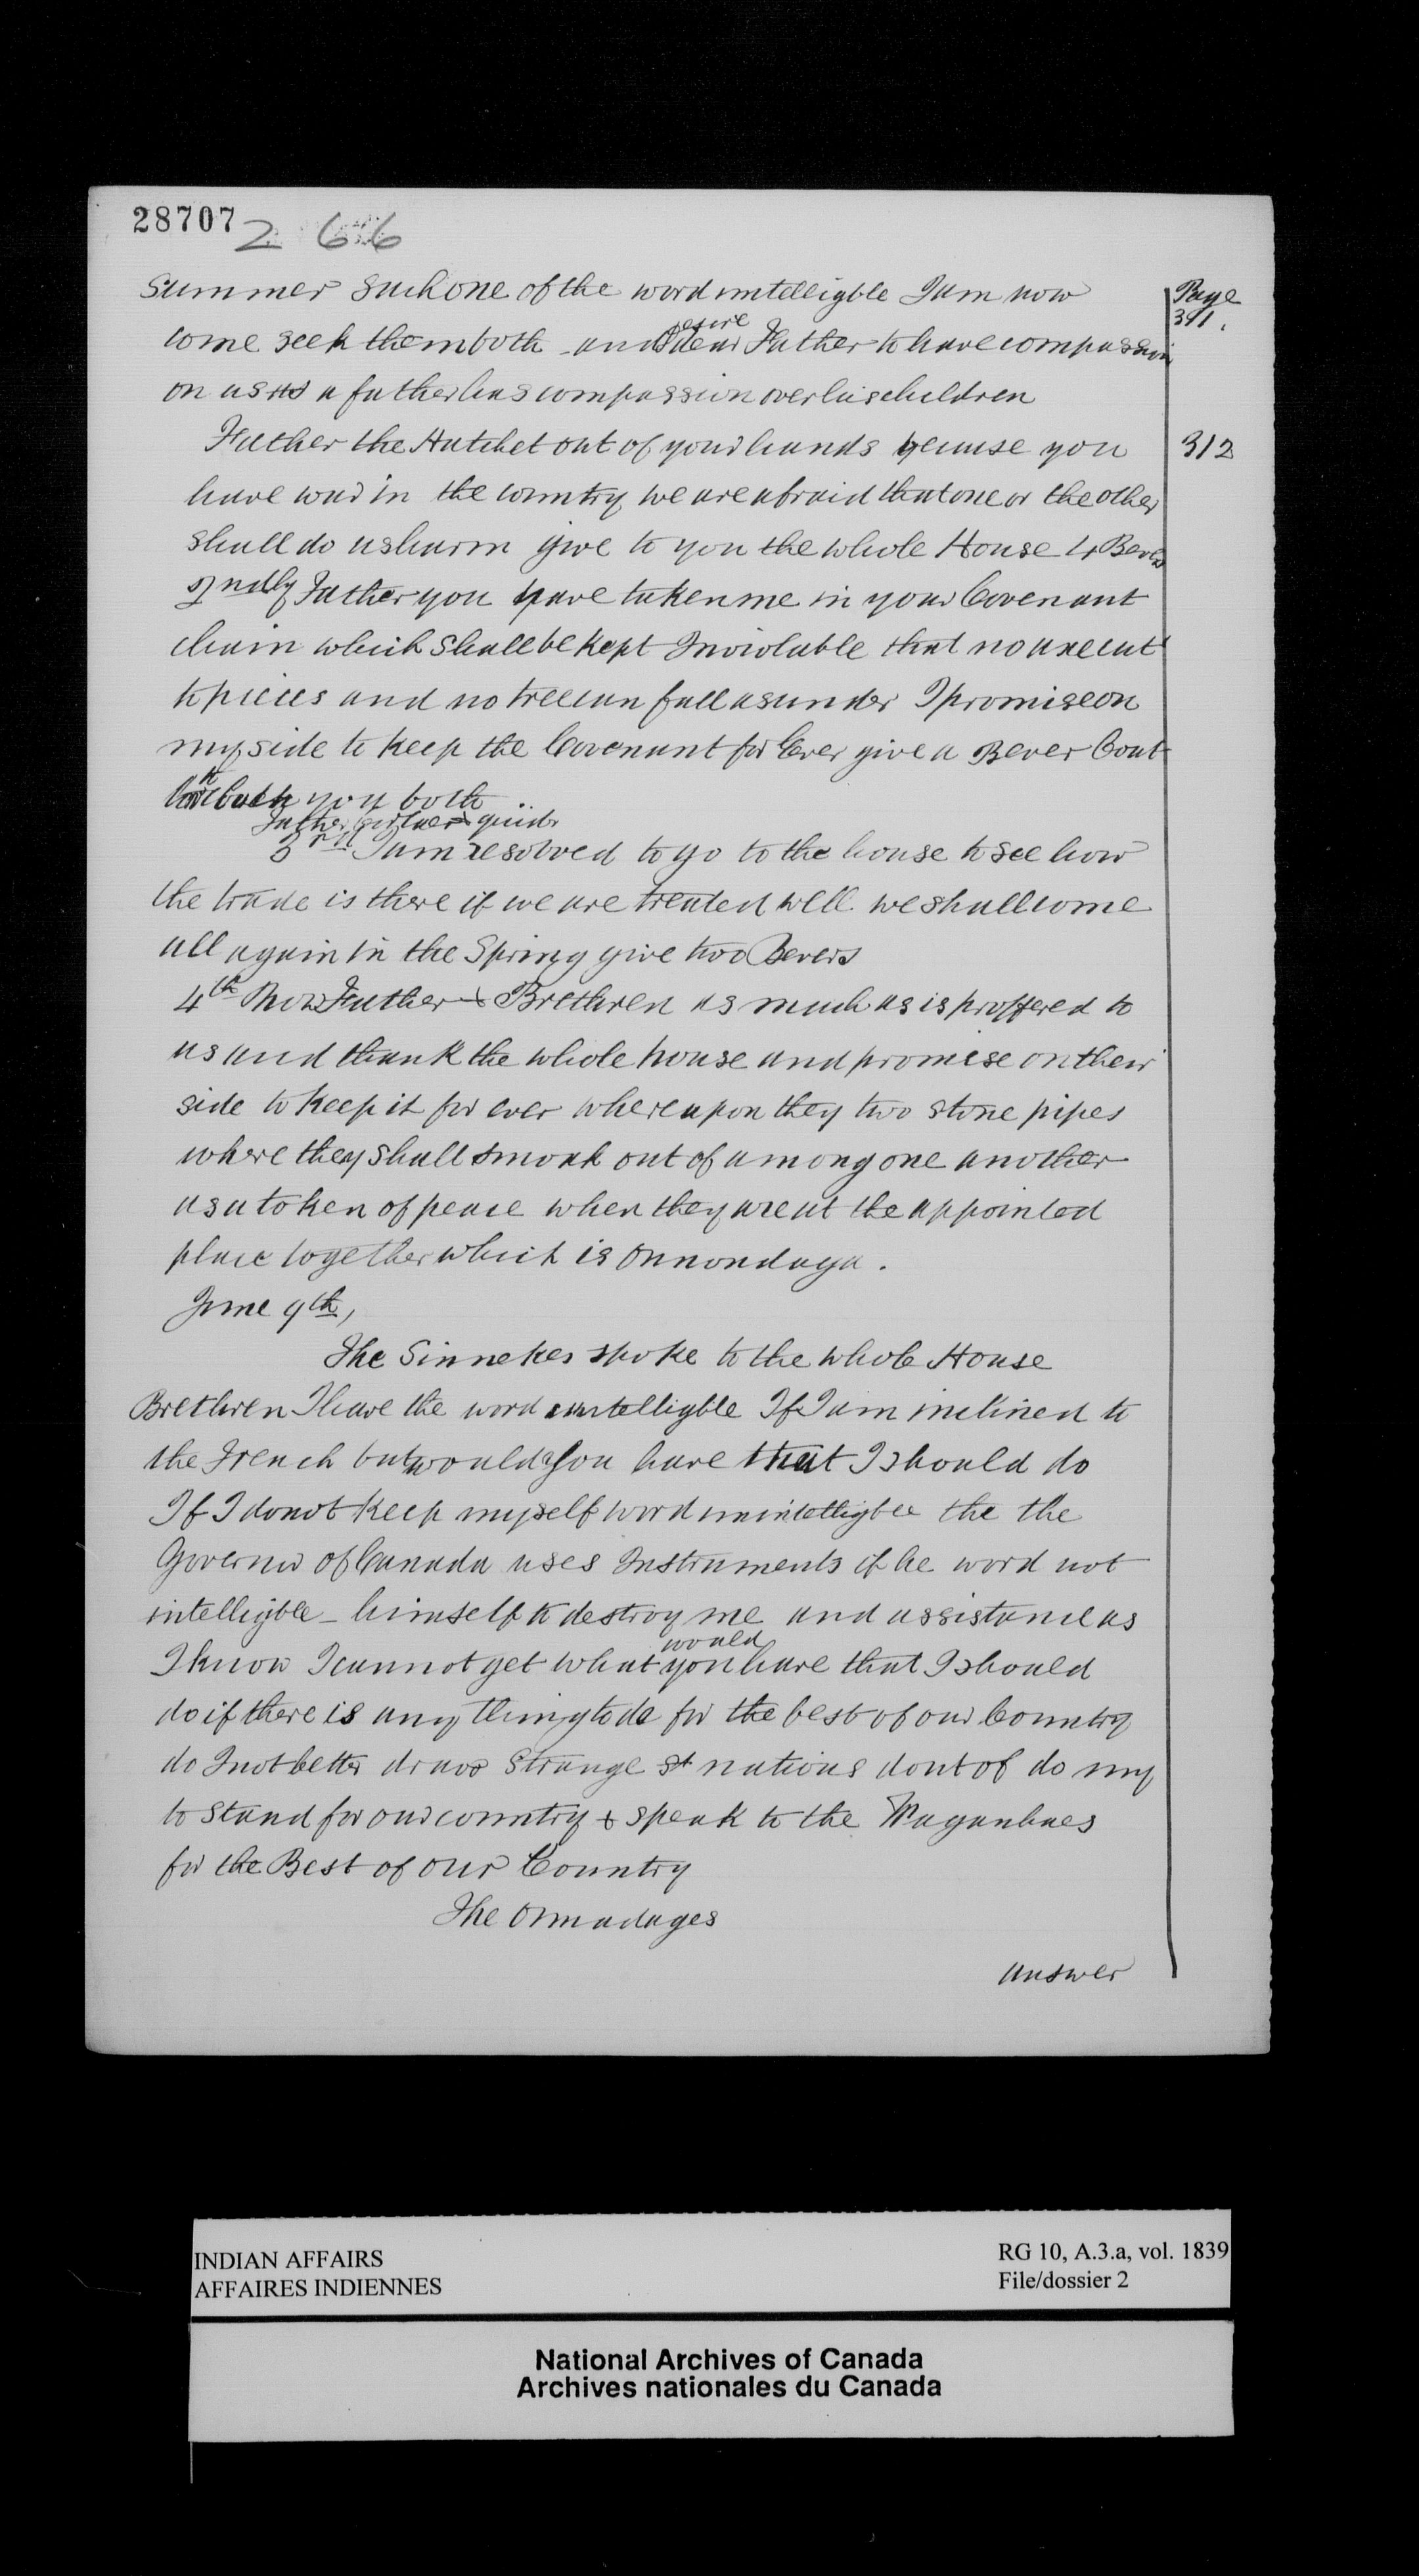 28707
2 66
Page
311.
Summer such one of the word untelligble I am now
come seek them both and desire Father to have compassion
on us as a father has compassion over his children
Father the Hatchet out of your hands because you
312
have war in the country we are afraid that one or the other
shall do us harm give to you the whole House 4 Bevers
2ndly Father you have taken me in your Covenant
chain which shall be kept Inviolable that no axe cut
to pieces and no tree can fall asunder I promise on
my side to keep the Covenant for Ever give a Bever Coat
you both
Father
3rd I am resolved to go to the house to see how
the trade is there if we are treated well we shall come
all again in the Spring give two Bevers
4th Now Father & Brethren as much as is proffered to
us and thank the whole house and promise on their
side to keep it for ever where upon they two stone pipes
where they shall smoak out of among one another
as a token of peace when they are at the appointed
place together which is Onnondaga.
June 9th,
The Sinnekes spoke to the whole House
Brethren I have the word untelligble If I am inclined to
the French but would you have that I should do
If I do not keep myself word unintelligble the the
Governor of Canada uses Instruments if he word not
intelligble - himself to destroy me and assistance as
I know I cannot get what would you have that I should
do if there is any thing to do for the best of our Country
do I not better draw strange st nations dont of do my
to stand for our country & speak to the Waganhaes
for the Best of our Country
The Onnadages
Answer
INDIAN AFFAIRS
AFFAIRES INDIENNES
RG 10, A.3.a, vol. 1839
File/dossier 2
National Archives of Canada
Archives nationales du Canada